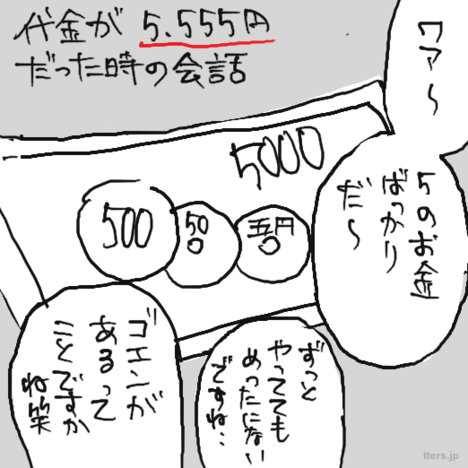 代金が 5.555円
だった時の会話
ワァ〜
5のお金
ばっかり
だ〜
5000
500
50
五円
ずっと
やってても
めったにない
ですね..
ゴエンが
あるって
ことですか
ね笑
tters.jp